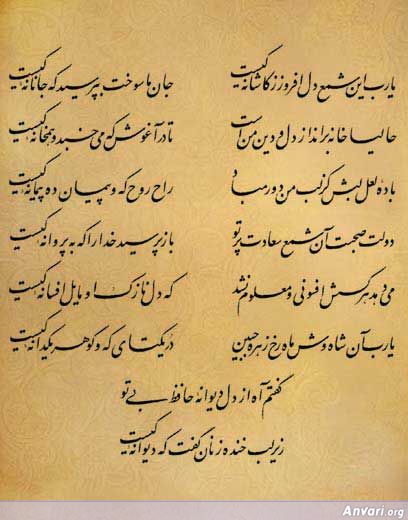 یارب این شمع دل افروز ز کاشانهٔ کیست جان ما سوخت بپرسید که جانانهٔ کیست
حالیا خانه برانداز دل و دین من است تا در آغوش که می خسبد و همخانهٔ کیست
بادهٔ لعل لبش کز لب من دور مباد راح روح که و پیمان ده پیمانهٔ کیست
دولت صحبت آن شمع سعادت پرتو باز پرسید خدا را که به پروانهٔ کیست
می دهد هر کسش افسونی و معلوم نشد که دل نازک او مایل افسانهٔ کیست
یارب آن شاه وش ماه رخ زهره جبین در یکتای که و گوهر یکدانهٔ کیست
گفتم آه از دل دیوانهٔ حافظ بی تو
زیر لب خنده زنان گفت که دیوانهٔ کیست
Anvari.org